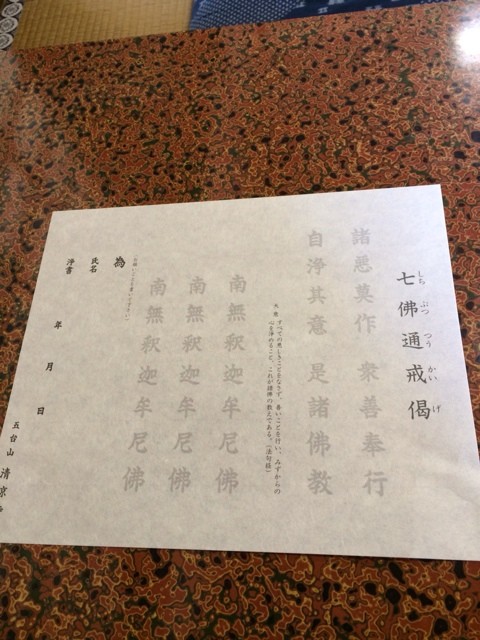 七佛通戒偈
しちぶつつうかいげ
諸悪莫作 衆善奉行
自浄其意 是諸佛教
大意 すべての悪しきことをなさず、善いことを行い、みずからの
心を浄めること、これが諸佛の教えである。(法句経)
南無釈迦牟尼佛
南無釈迦牟尼佛
南無釈迦牟尼佛
為
氏名
浄書 年 月 日
五台山 清凉